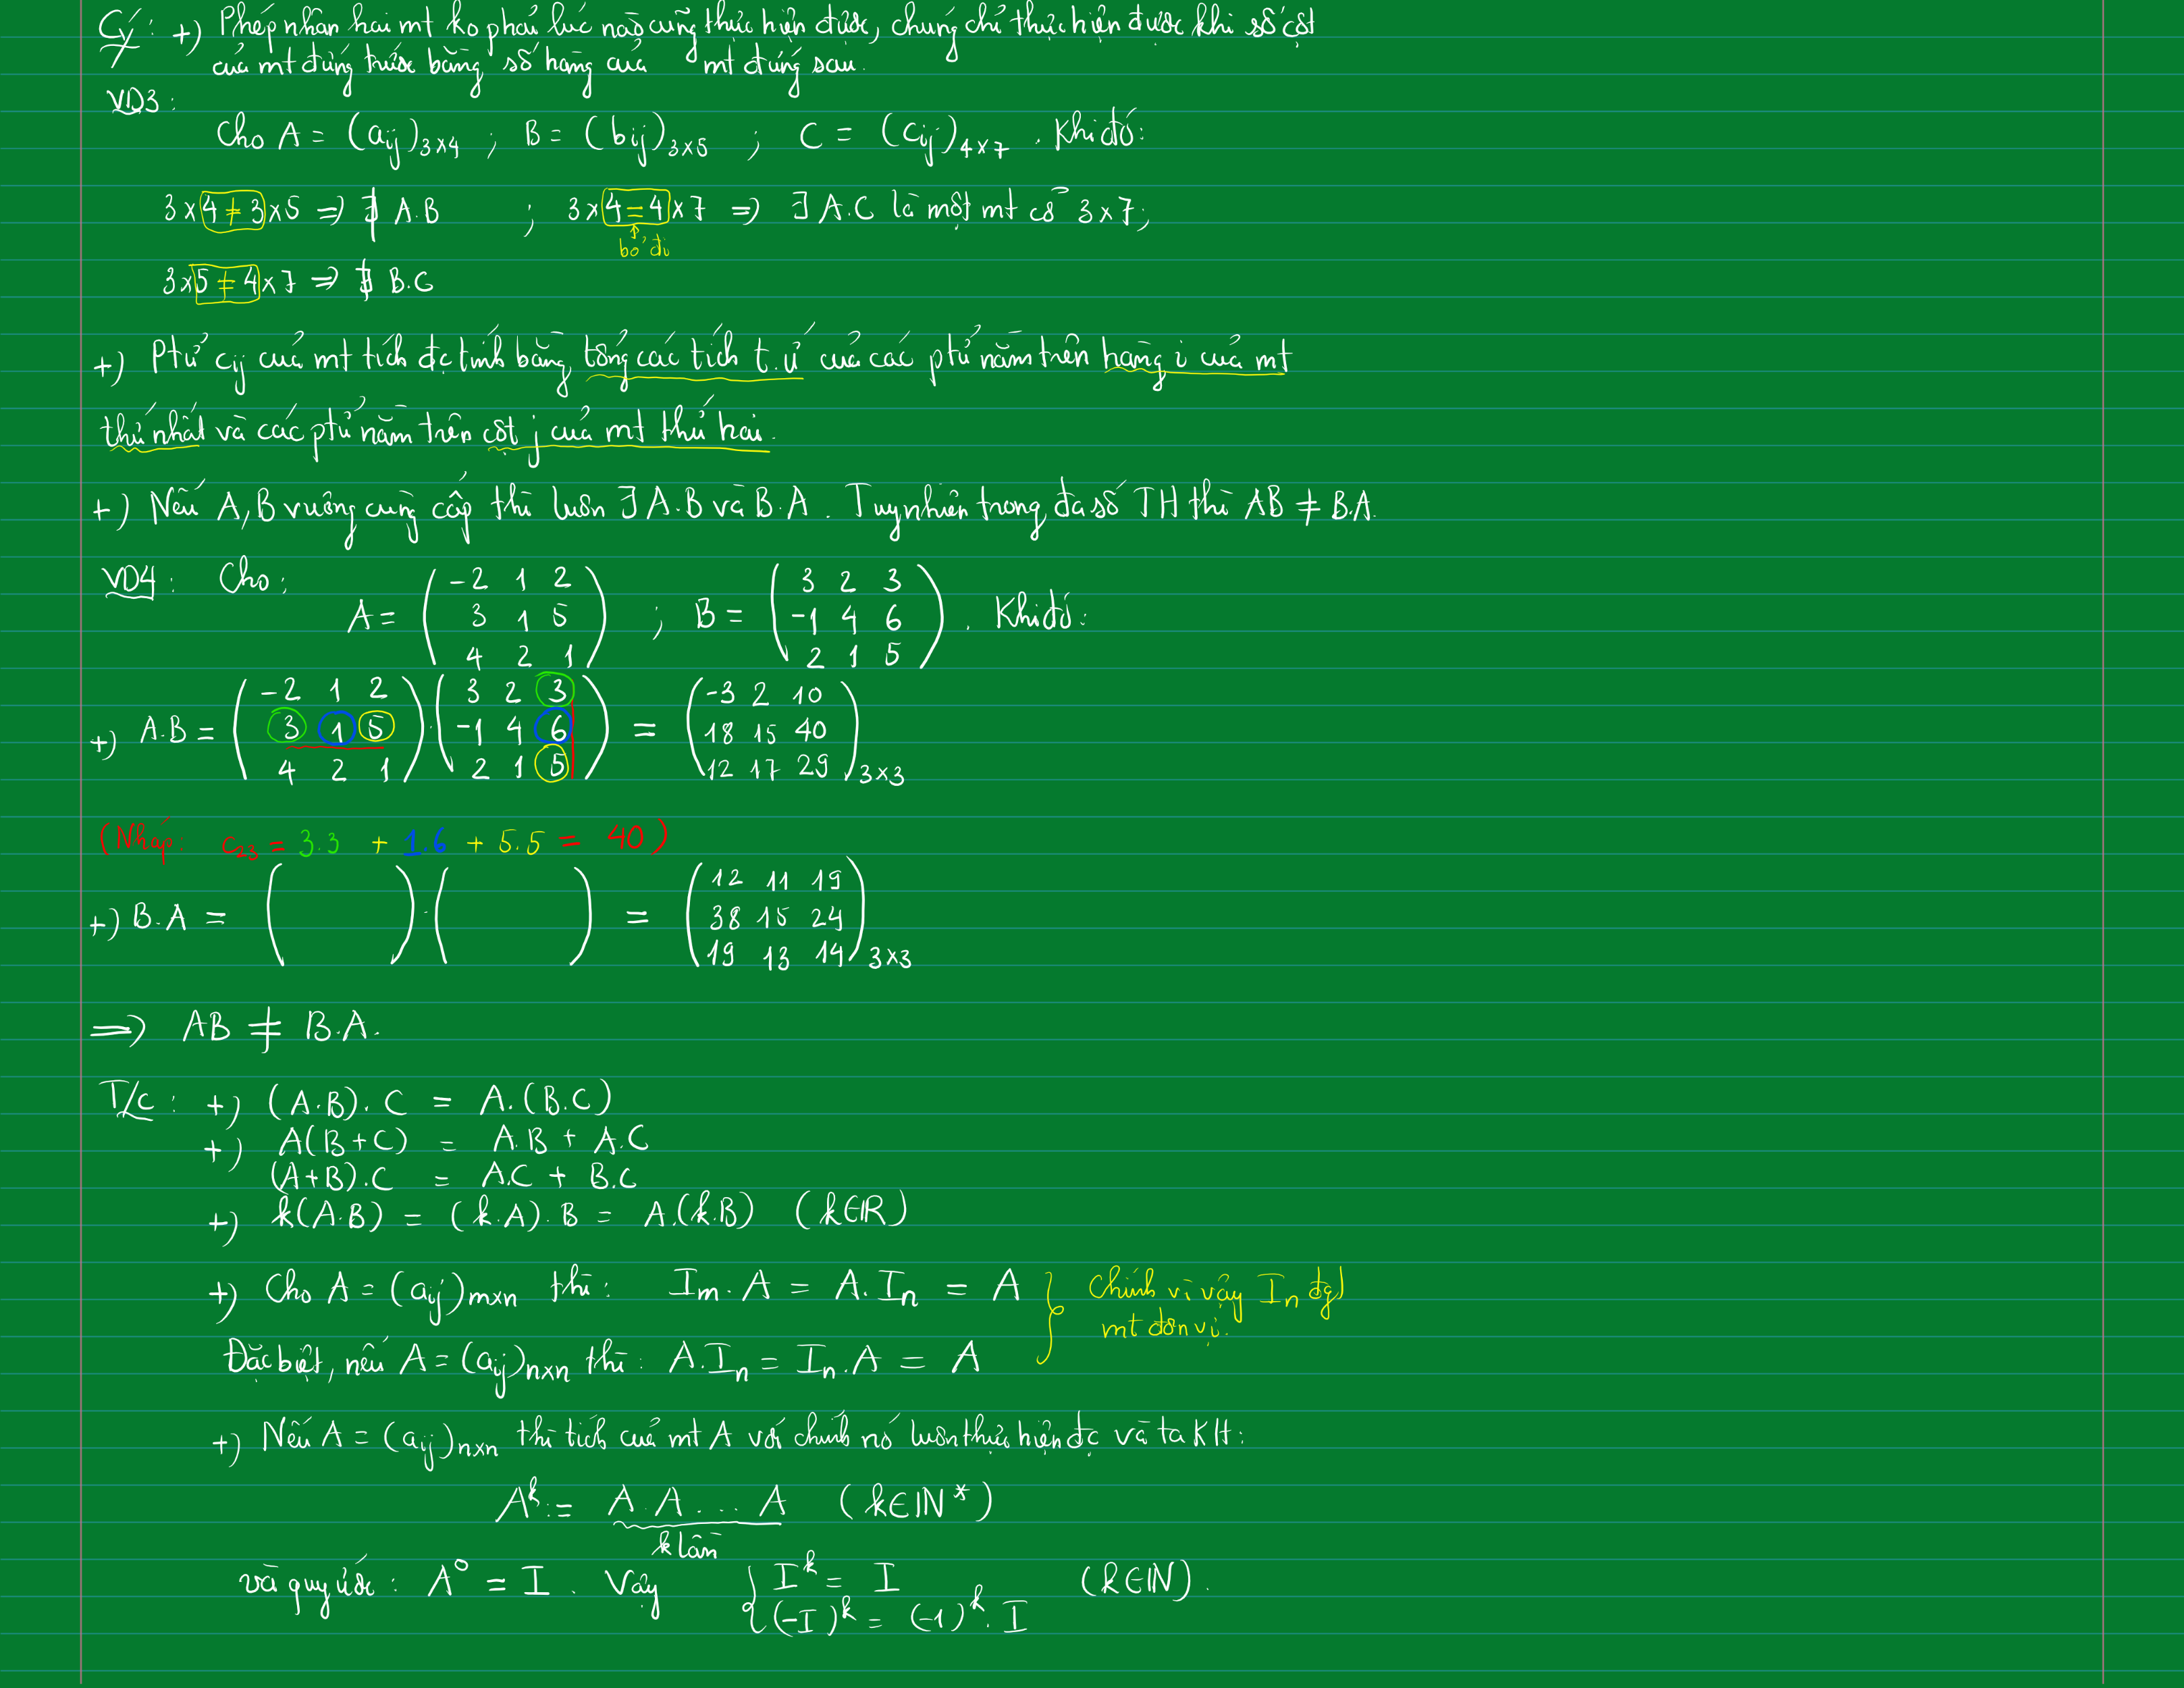 Cý: +) Phép nhân hai mt ko phải lúc nào cũng thực hiện được, chúng chỉ thực hiện được khi số cột
của mt đứng trước bằng số hàng của mt đứng sau.
VD3:
Cho A = (aij)3×4 ; B = (bij)3×5 ; C = (cij)4×7 . Khi đó:
3×4≠3×5 => ∄ A.B ; 3×4=4×7 => ∃ A.C là một mt cỡ 3×7;
bỏ đi
3×5≠4×7 => ∄ B.C
+) Ptử cij của mt tích đc tính bằng tổng các tích t.ứ của các ptử nằm trên hàng i của mt
thứ nhất và các ptử nằm trên cột j của mt thứ hai.
+) Nếu A, B vuông cùng cấp thì luôn ∃ A.B và B.A. Tuy nhiên trong đa số TH thì AB ≠ B.A.
VD4: Cho:
-2 1 2 3 2 3
A = 3 1 5 ; B = -1 4 6 . Khi đó:
4 2 1 2 1 5
-2 1 2 3 2 3 -3 2 10
+) A.B = 3 1 5 . -1 4 6 = 18 15 40
4 2 1 2 1 5 12 17 29 3×3
(Nháp: c23 = 3.3 + 1.6 + 5.5 = 40)
12 11 19
+) B.A = ( ) . ( ) = 38 15 24
19 13 14 3×3
=> AB ≠ B.A.
T/c: +) (A.B). C = A.(B.C)
+) A(B+C) = A.B + A.C
(A+B).C = A.C + B.C
+) k(A.B) = (k.A).B = A.(k.B) (k∈ℝ)
+) Cho A = (aij)m×n thì: Im.A = A.In = A } Chính vì vậy In đgl
mt đơn vị.
Đặc biệt, nếu A = (aij)n×n thì: A.In = In.A = A
+) Nếu A = (aij)n×n thì tích của mt A với chính nó luôn thực hiện đc và ta KH:
A^k := A.A...A (k∈ℕ*)
k lần
và quy ước: A⁰ = I. Vậy { I^k = I (k∈ℕ).
(-I)^k = (-1)^k. I